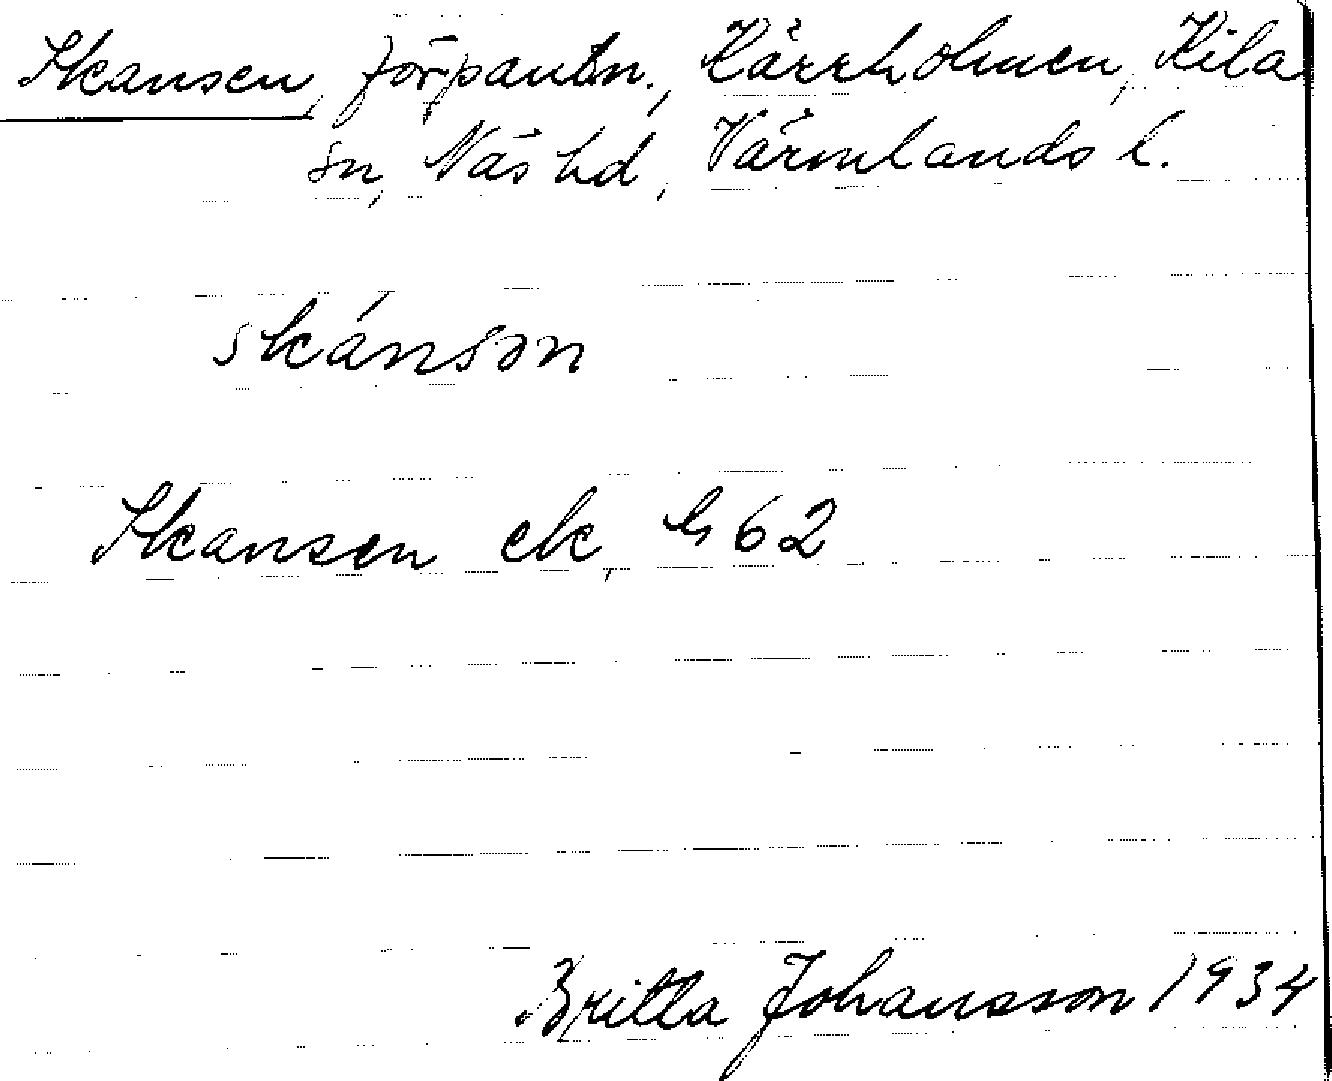 Skansen, förpantn., Kärrholmen, Kila
sn, Näs hd, Värmlands l.
skánsən
Skansen ek, G 62
Britta Johansson 1934